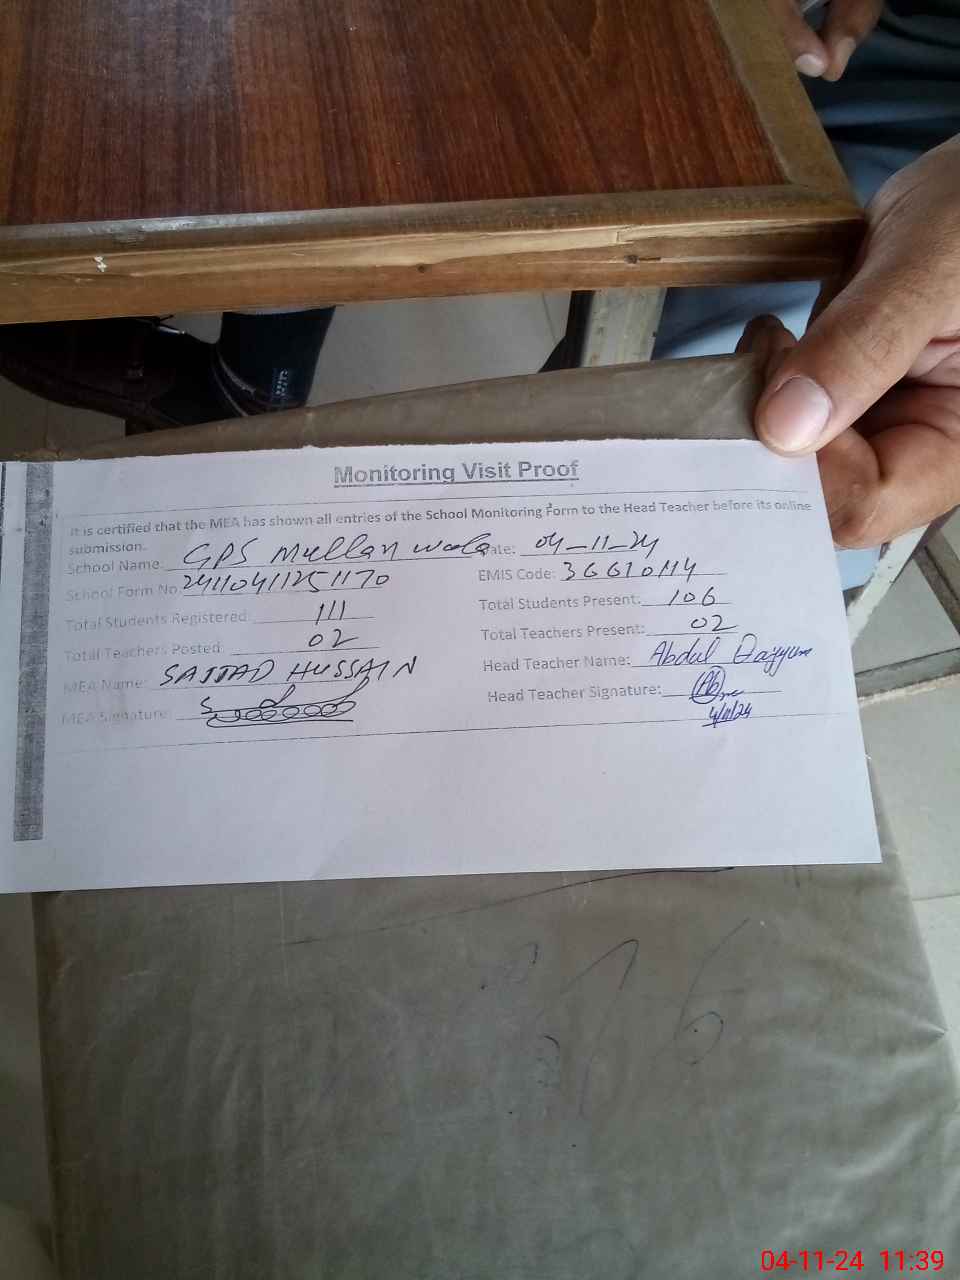 Monitoring Visit Proof
It is certified that the MEA has shown all entries of the School Monitoring Form to the Head Teacher before its online
submission.
School Name: GPS Mullan wala Date: 04-11-24
School Form No: 24110411251170 EMIS Code: 36610114
Total Students Registered: 111 Total Students Present: 106
Total Teachers Posted: 02 Total Teachers Present: 02
MEA Name: SAJJAD HUSSAIN Head Teacher Name: Abdul Qayyum
MEA Signature: Head Teacher Signature:
4/11/24
04-11-24 11:39